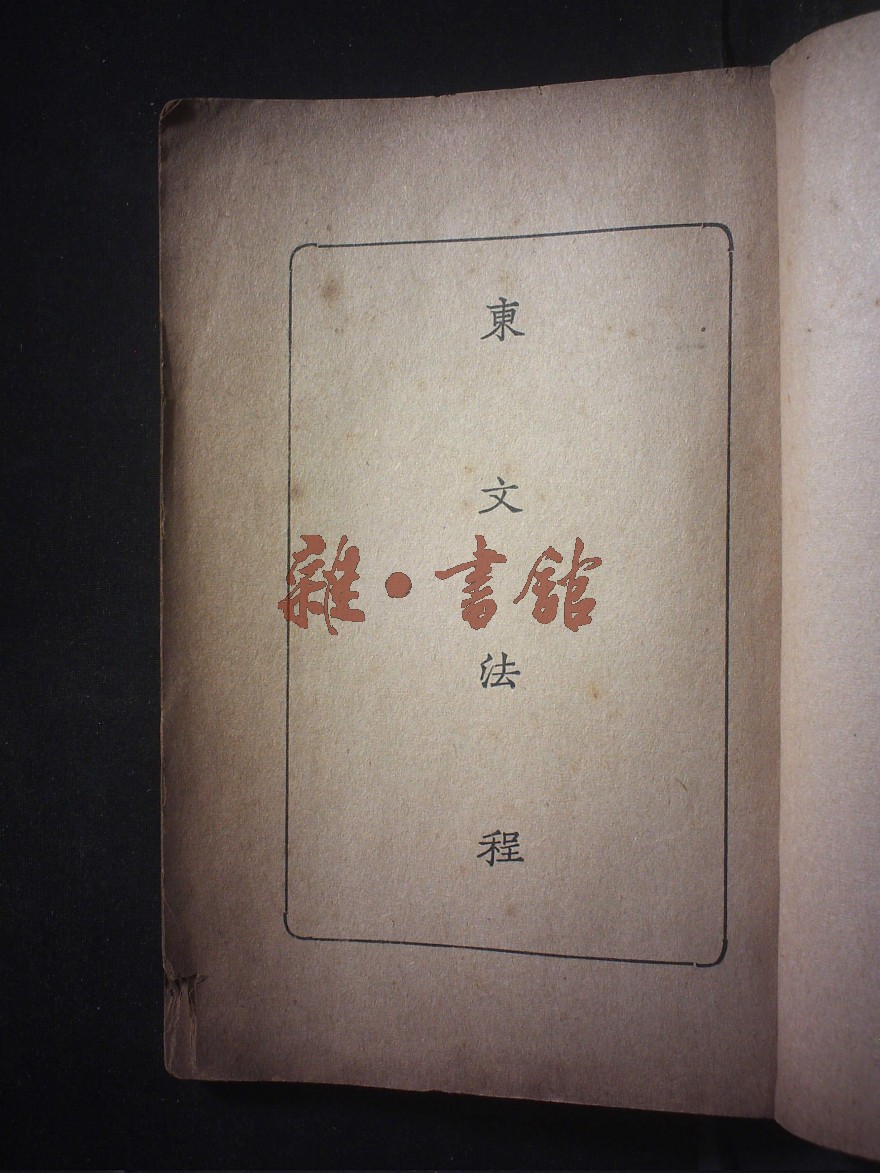 東文法程
雜·書館